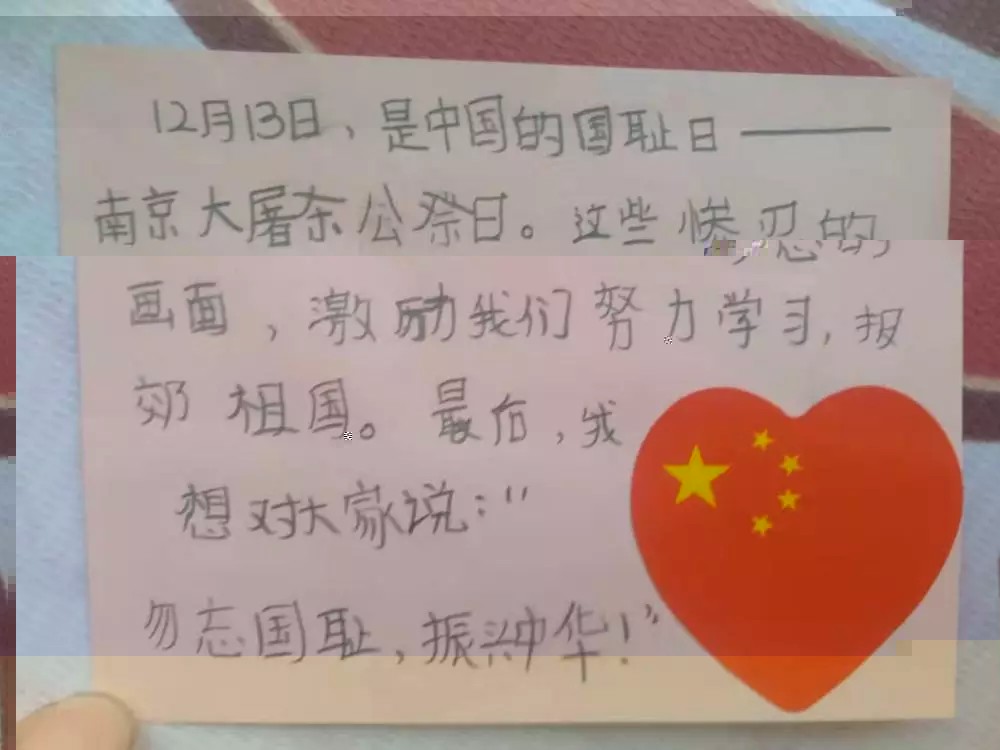 12月13日，是中国的国耻日——
南京大屠杀公祭日。这些惨忍的
画面，激励我们努力学习，报
效祖国。最后，我
想对大家说："
勿忘国耻，振兴中华！"